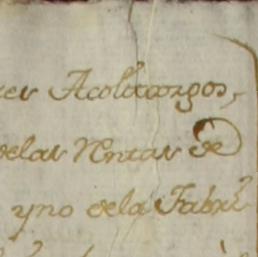 res Acolitazgos,
de las Rentas de
y no de la Fabri